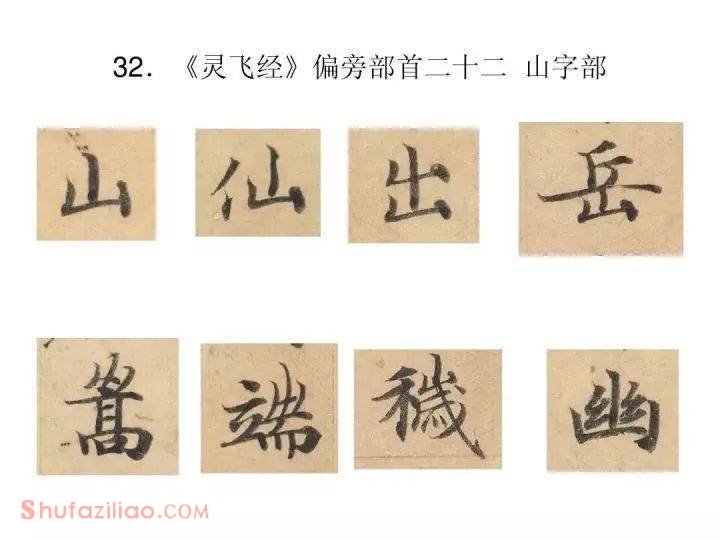 32. 《灵飞经》偏旁部首二十二 山字部
山 仙 出 岳
嵩 端 穢 幽
Shufaziliao.com